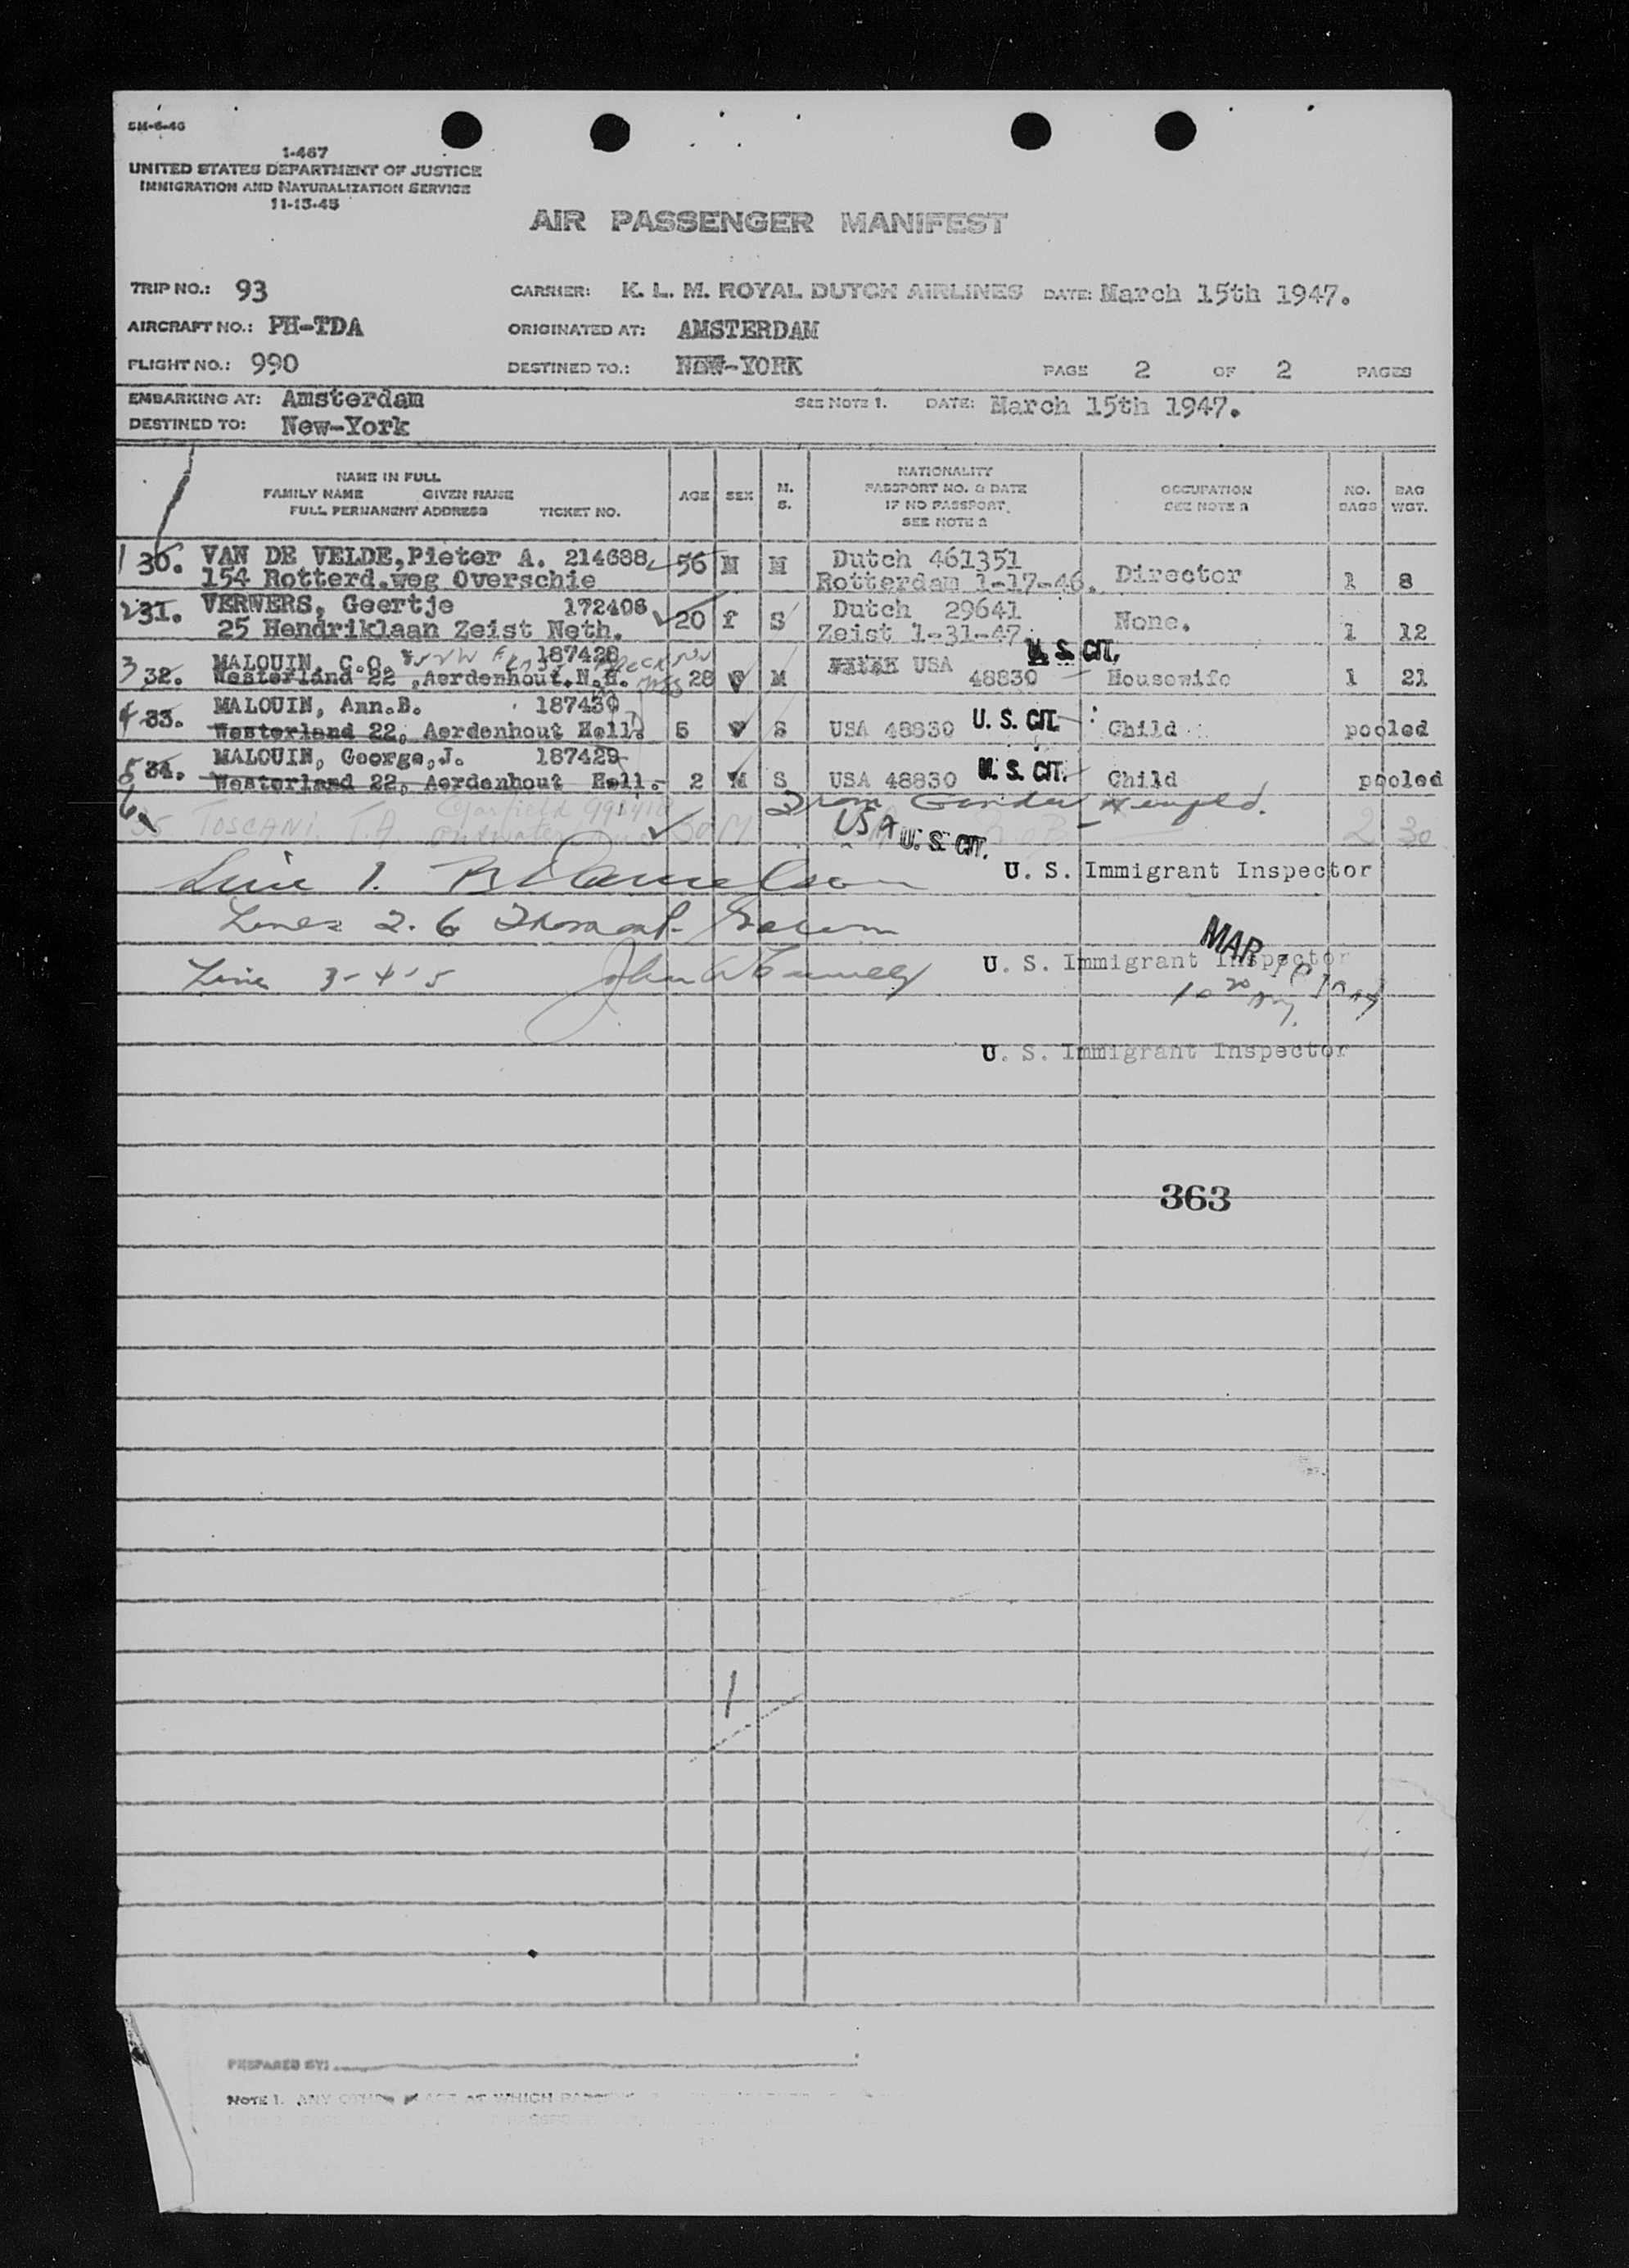 5M-6-46
1-467
UNITED STATES DEPARTMENT OF JUSTICE
IMMIGRATION AND NATURALIZATION SERVICE
11-13-45
AIR PASSENGER MANIFEST
TRIP NO.: 93 CARRIER: K. L. M. ROYAL DUTCH AIRLINES DATE: March 15th 1947.
AIRCRAFT NO.: PH-TDA ORIGINATED AT: AMSTERDAM
FLIGHT NO.: 990 DESTINED TO.: NEW-YORK PAGE 2 OF 2 PAGES
EMBARKING AT: Amsterdam SEE NOTE 1. DATE: March 15th 1947.
DESTINED TO: New-York
NAME IN FULL
FAMILY NAME GIVEN NAME
FULL PERMANENT ADDRESS TICKET NO.
AGE
SEX
M. S.
NATIONALITY
PASSPORT NO. & DATE
IF NO PASSPORT,
SEE NOTE 2
OCCUPATION
SEE NOTE 3
NO. BAGS
BAG WGT.
1 30. VAN DE VELDE, Pieter A. 214688 56 M M Dutch 461351
154 Rotterd.weg Overschie Rotterdam 1-17-46. Director 1 8
2 31. VERWERS, Geertje 172408 20 f S Dutch 29641 None.
25 Hendriklaan Zeist Neth. Zeist 1-31-47 1 12
3 32. MALOUIN, C.O. 187428 USA U. S. CIT.
Westerland 22, Aerdenhout.N.H. 28 M 48830 Housewife 1 21
4 33. MALOUIN, Ann.B. 187430
Westerland 22, Aerdenhout Holl. 5 S USA 48830 U. S. CIT. Child pooled
5 34. MALOUIN, George,J. 187429
Westerland 22, Aerdenhout Holl. 2 M S USA 48830 U. S. CIT. Child pooled
6 From Gander
35 TOSCANI. T.A Garfield 30 M USA U. S. CIT. 2 30
Line 1. U. S. Immigrant Inspector
Lines 2. 6
MAR
Line 3-4-5 U. S. Immigrant Inspector
U. S. Immigrant Inspector
363
1
PREPARED BY:
NOTE 1. ANY OTHER PLACE AT WHICH